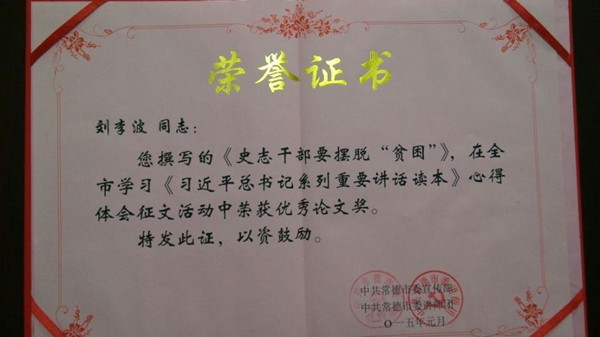 荣誉证书
刘李波 同志：
您撰写的《史志干部要摆脱“贫困”》，在全
市学习《习近平总书记系列重要讲话读本》心得
体会征文活动中荣获优秀论文奖。
特发此证，以资鼓励。
中共常德市委宣传部
中共常德市委讲师团
二〇一五年元月